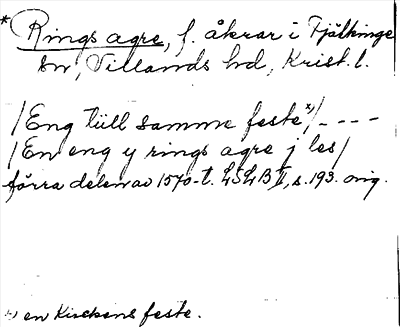 * Rings agre, f. åkrar i Fjälkinge
sn, Villands hd, Krist. l.
/Eng tüll samme feste*)/ - - - -
/En eng y rings agre j les/
förra delen av 1570-t. LSLB II, s. 193. orig.
*) en Kirckens feste.